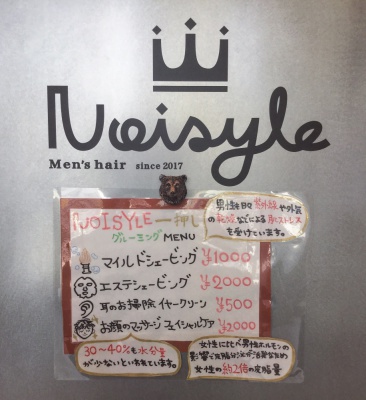 Noisyle
Men's hair since 2017
NOISYLE 一押し
グルーミング MENU
マイルドシェービング ¥1000
エステシェービング ¥2000
耳のお掃除 イヤークリーン ¥500
お顔のマッサージ フェイシャルケア ¥2000
男性は日々 紫外線や外気
の乾燥などによる 肌ストレス
を受けています。
30〜40%も水分量
が少ないといわれています。
女性にくらべ男性ホルモンの
影響で皮脂分泌が活発なため
女性の約2倍の皮脂量